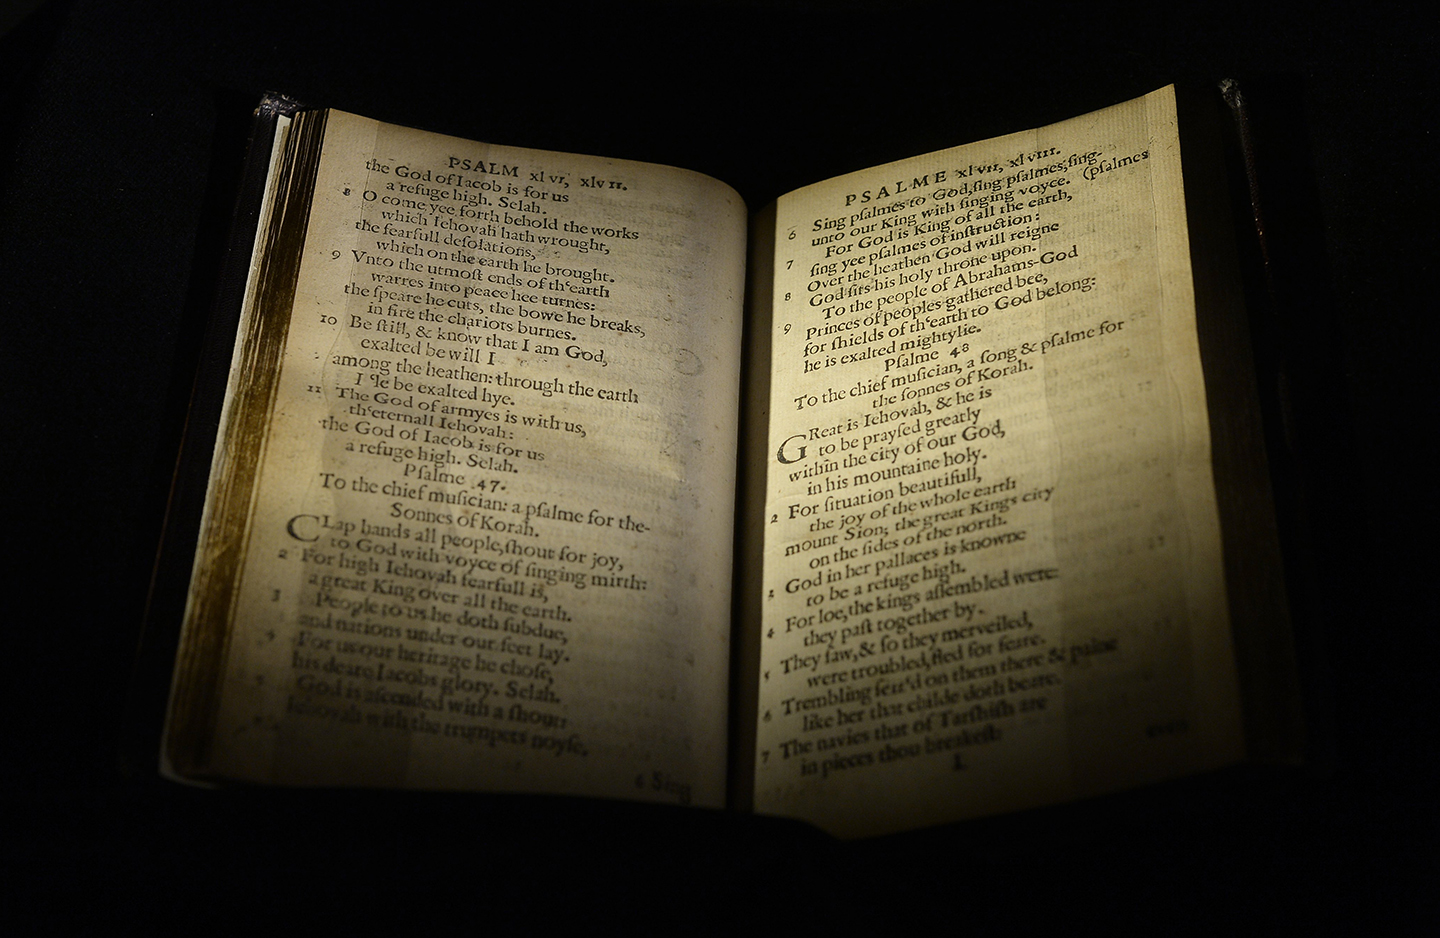 PSALM xlvi, xlvii.
the God of Iacob is for us
a refuge high. Selah.
8 O come yee forth behold the works
which Iehovah hath wrought,
the fearfull desolations,
which on the earth he brought.
9 Vnto the utmoſt ends of th'earth
warres into peace hee turnes:
the ſpeare he cuts, the bowe he breaks,
in fire the chariots burnes.
10 Be ſtill, & know that I am God,
exalted be will I
among the heathen: through the earth
I'le be exalted hye.
11 The God of armyes is with us,
th'eternall Iehovah:
the God of Iacob is for us
a refuge high. Selah.
Pſalme 47.
To the chief muſician: a pſalme for the-
Sonnes of Korah.
CLap hands all people, ſhout for joy,
to God with voyce of ſinging mirth:
2 For high Iehovah fearfull is,
a great King over all the earth.
3 People to us he doth ſubdue,
and nations under our feet lay.
4 For us our heritage he choſe,
his deare Iacobs glory. Selah.
5 God is aſcended with a ſhout:
Iehovah with the trumpets noyſe.
6 Sing
PSALME xlvii, xlviii.
Sing pſalmes to God, ſing pſalmes, ſing-
unto our King with ſinging voyce. (pſalmes
6 For God is King of all the earth,
ſing yee pſalmes of inſtruction:
7 Over the heathen God will reigne
God ſits his holy throne upon.
8 To the people of Abrahams-God
Princes of peoples gathered bee,
9 for ſhields of th'earth to God belong:
he is exalted mightylie.
Pſalme 48
To the chief muſician, a ſong & pſalme for
the ſonnes of Korah.
GReat is Iehovah, & he is
to be prayſed greatly
within the city of our God,
in his mountaine holy.
2 For ſituation beautifull,
the joy of the whole earth
mount Sion; the great Kings city
on the ſides of the north.
3 God in her pallaces is knowne
to be a refuge high.
4 For loe, the kings aſſembled were:
they paſt together by.
5 They ſaw, & ſo they merveiled,
were troubled, fled for feare.
6 Trembling ſeiz'd on them there & paine
like her that childe doth beare.
7 The navies that of Tarſhiſh are
in pieces thou breakeſt: